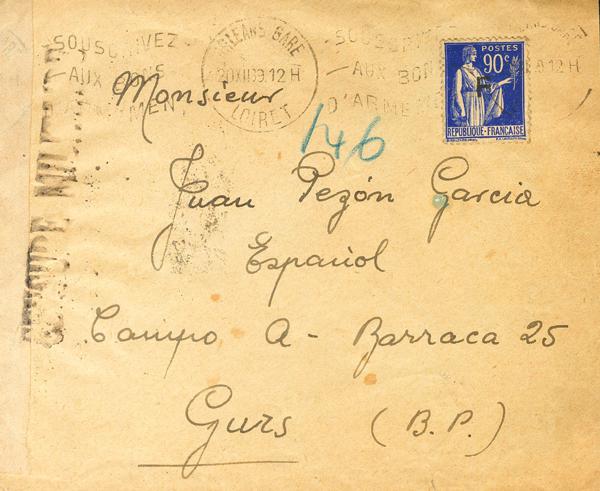 SOUSCRIVEZ
AUX BONS
D'ARMEMENT
ORLEANS GARE
12H
LOIRET
SOUSCRIVEZ
AUX BONS
D'ARMEMENT
12H
POSTES
90c
F
REPUBLIQUE-FRANÇAISE
Monsieur
146
Juan Pezón Garcia
Español
Campo A - Barraca 25
Gurs (B.P.)
MILITAIRE